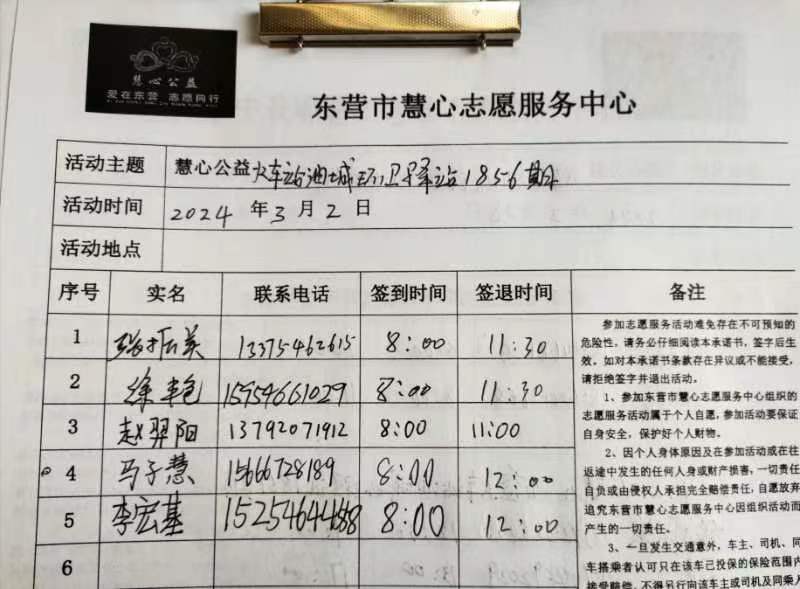 慧心公益
爱在东营 志愿同行
东营市慧心志愿服务中心
活动主题 慧心公益火车站油城环卫驿站1856期
活动时间 2024年3月2日
活动地点
序号 实名 联系电话 签到时间 签退时间 备注
1 张振美 13375462615 8:00 11:30
2 徐艳 15954661029 8:00 11:30
3 赵羿阳 13792071912 8:00 11:00
4 马子慧 1566728189 8:00 12:00
5 李宏基 15254644688 8:00 12:00
6
参加志愿服务活动难免存在不可预知的
危险性,请务必仔细阅读本承诺书,签字后生
效。如对本承诺书条款存在异议或不能接受,
请拒绝签字并退出活动。
1、参加东营市慧心志愿服务中心组织的
志愿服务活动属于个人自愿,参加活动要保证
自身安全,保护好个人财物。
2、因个人身体原因及在参加活动或在往
返途中发生的任何人身或财产损害,一切责任
自负或由侵权人承担完全赔偿责任,自愿放弃
追究东营市慧心志愿服务中心因组织活动而
产生的一切责任。
3、一旦发生交通意外,车主、司机、同
车搭乘者认可只在该车已投保的保险范围内
接受赔偿,不得另行向该车主或司机及同乘人